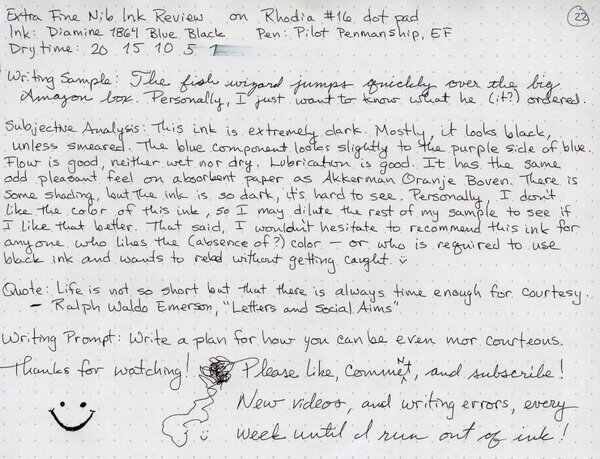 Extra Fine Nib Ink Review on Rhodia #16 dot pad
22
Ink: Diamine 1864 Blue Black Pen: Pilot Penmanship, EF
Dry time: 20 15 10 5 1
Writing Sample: The fish wizard jumps quickly over the big
Amazon box. Personally, I just want to know what he (it?) ordered.
Subjective Analysis: This ink is extremely dark. Mostly, it looks black,
unless smeared. The blue component looks slightly to the purple side of blue.
Flow is good, neither wet nor dry. Lubrication is good. It has the same
odd pleasant feel on absorbent paper as Akkerman Oranje Boven. There is
some shading, but the ink is so dark, it's hard to see. Personally, I don't
like the color of this ink, so I may dilute the rest of my sample to see if
I like that better. That said, I wouldn't hesitate to recommend this ink for
anyone who likes the (absence of?) color – or who is required to use
black ink and wants to rebel without getting caught.
Quote: Life is not so short but that there is always time enough for courtesy.
– Ralph Waldo Emerson, "Letters and Social Aims"
Writing Prompt: Write a plan for how you can be even mor courteous.
Thanks for watching! Please like, comment, and subscribe!
New videos, and writing errors, every
week until I run out of ink!